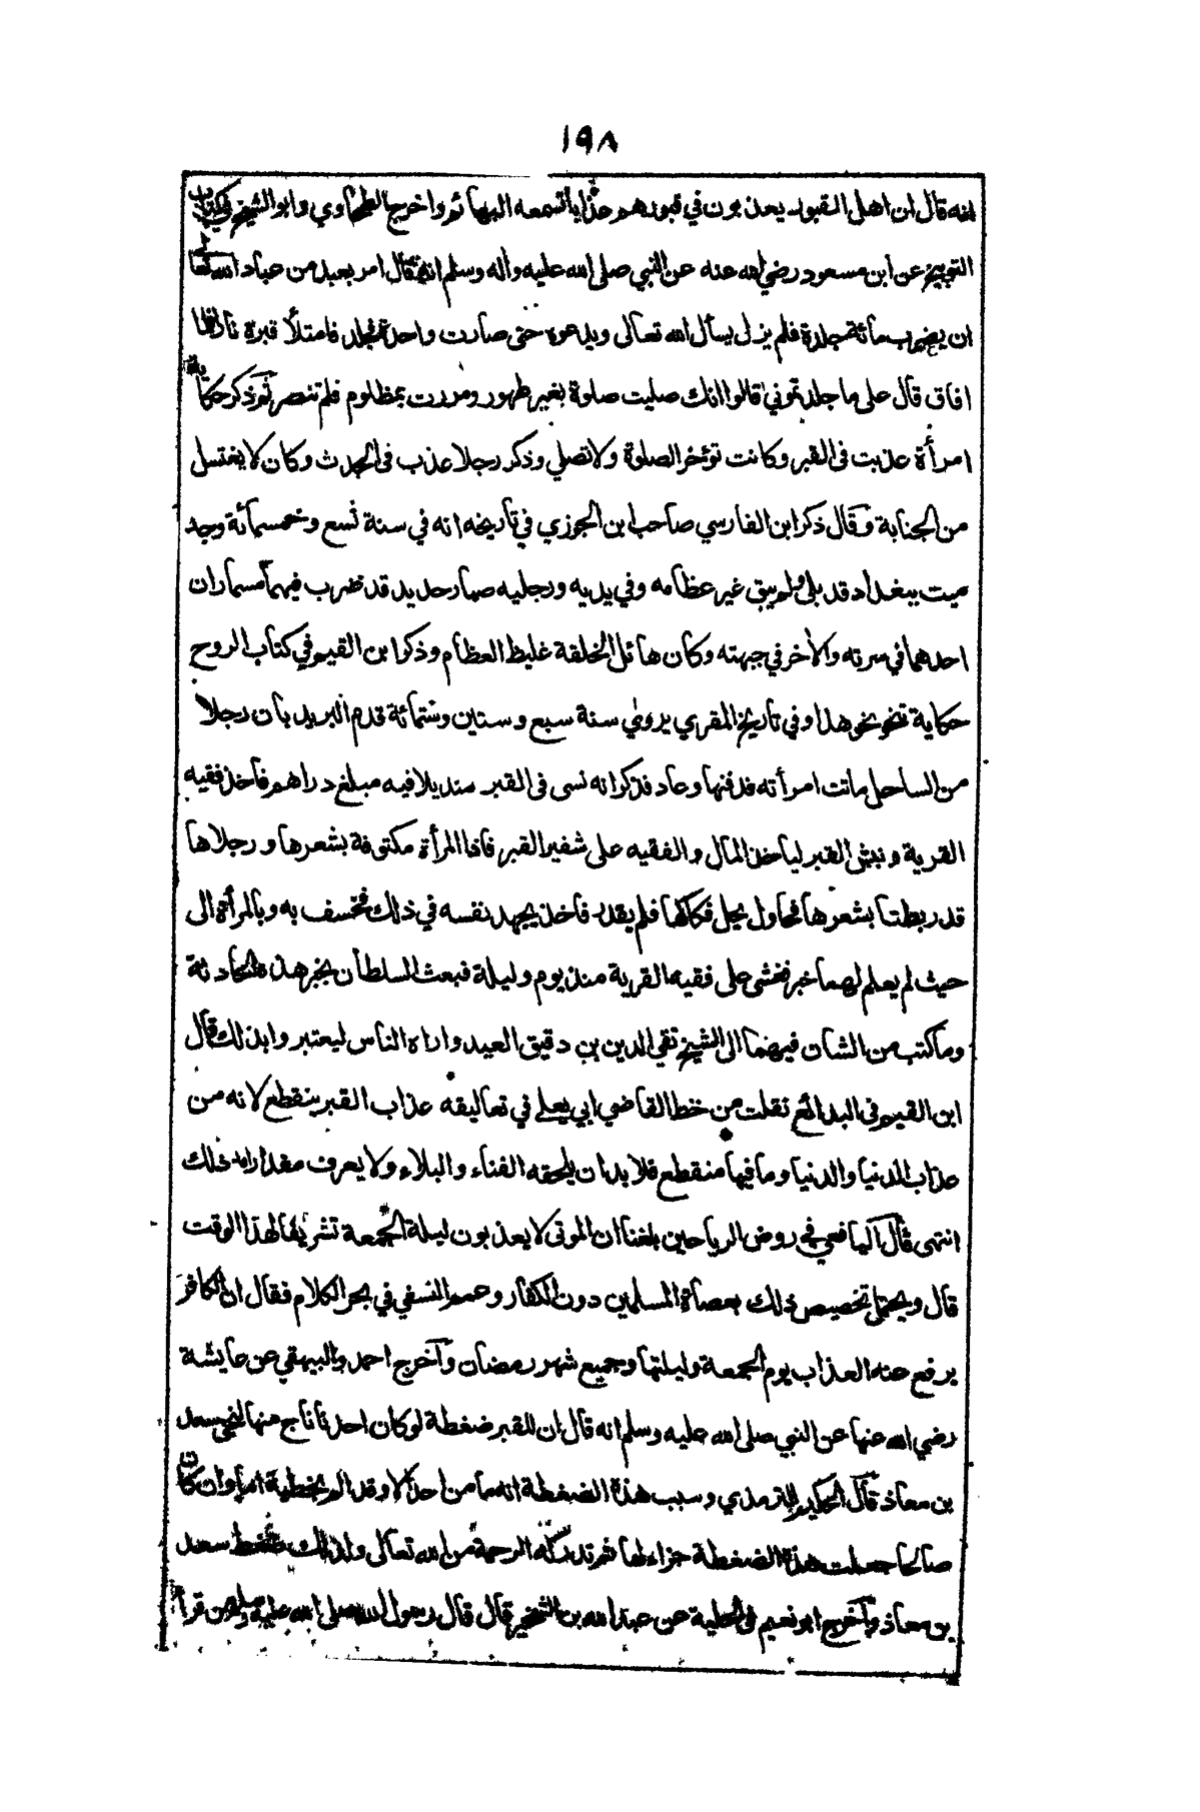 ١٩٨
انه قال ان اهل القبور يعذبون في قبورهم عذابا تسمعه البهائم واخرج الطحاوي وابو الشيخ في كتاب
التوبيخ عن ابن مسعود رضي الله عنه عن النبي صلى الله عليه واله وسلم انه قال امر بعبد من عباد الله تعالى
ان يضرب مائة جلدة فلم يزل يسأل الله تعالى ويدعوه حتى صارت واحدة فجلد فامتلأ قبره نارا فلما
افاق قال على ما جلدتموني قالوا انك صليت صلوة بغير طهور ومررت بمظلوم فلم تنصره ثم ذكر حكاية
امرأة عذبت في القبر وكانت تؤخر الصلوة ولا تصلي وذكر رجلا عذب في الحدث وكان لا يغتسل
من الجنابة وقال ذكر ابن الفارسي صاحب ابن الجوزي في تاريخه انه في سنة تسع وخمسمائة وجد
ميت ببغداد قد بلي ولم يبق غير عظامه وفي يديه ورجليه صمار حديد قد ضرب فيهما مسماران
احدهما في سرته والأخر في جبهته وكان هائل الخلقة غليظ العظام وذكر ابن القيم في كتاب الروح
حكاية نحو هذا وفي تاريخ المقري يروي سنة سبع وستين وستمائة قدم البريد بان رجلا
من الساحل ماتت امرأته فدفنها وعاد فذكر انه نسى في القبر منديلا فيه مبلغ دراهم فاخذ فقيه
القرية ونبش القبر لياخذ المال والفقيه على شفير القبر فاذا المرأة مكتوفة بشعرها ورجلاها
قد ربطتا بشعرها فحاول يحل فكاكها فلم يقدر فاخذ يجهد نفسه في ذلك فخسف به وبالمرأة الى
حيث لم يعلم لهما خبر فغشي على فقيه القرية منذ يوم وليلة فبعث السلطان بخبر هذه الحادثة
وما كتب من الشان فيهما الى الشيخ تقي الدين بن دقيق العيد واراه الناس ليعتبروا بذلك قال
ابن القيم في البدائع نقلت من خط القاضي ابي يعلى في تعاليقه عذاب القبر ينقطع لانه من
عذاب الدنيا والدنيا وما فيها منقطع فلا بد ان يلحقه الفناء والبلاء ولا يعرف مقدار امد ذلك
انتهى قال اليافعي في روض الرياحين بلغنا ان الموتى لا يعذبون ليلة الجمعة تشريفا لهذا الوقت
قال ويحتمل تخصيص ذلك بعصاة المسلمين دون الكفار وعمم النسفي في بحر الكلام فقال ان الكافر
يرفع عنه العذاب يوم الجمعة وليلتها وجميع شهر رمضان وأخرج احمد والبيهقي عن عايشة
رضي الله عنها عن النبي صلى الله عليه وسلم انه قال ان للقبر ضغطة لو كان احد ناج منها لنجي سعد
بن معاذ قال الحكيم الترمذي وسبب هذه الضغطة انه ما من احد الا وقد الم بخطيئة ما وان كان
صالحا جعلت هذه الضغطة جزاء لها ثم تدركه الرحمة من الله تعالى ولذلك ضغط سعد
بن معاذ وأخرج ابو نعيم في الحلية عن عبد الله بن الشخير قال قال رسول الله صلى الله عليه وسلم من قرأ